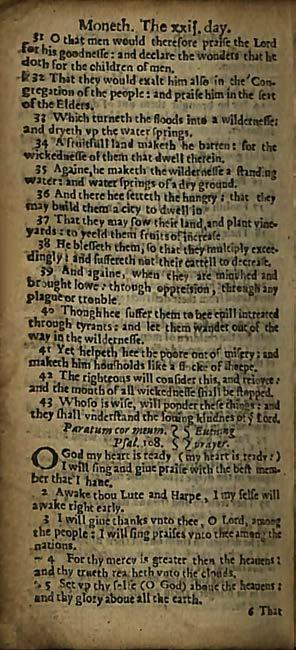 Moneth. The xxij. day.
31 O that men would therefore praise the Lord
for his goodnesse: and declare the wonders that he
doth for the children of men.
32 That they would exalt him also in the Con-
gregation of the people: and praise him in the seat
of the Elders.
33 Which turneth the floods into a wildernesse:
and dryeth vp the water springs.
34 A fruitfull land maketh he barren: for the
wickednesse of them that dwell therein.
35 Againe, he maketh the wildernesse a standing
water: and water springs of a dry ground.
36 And there hee setteth the hungry: that they
may build them a city to dwell in
37 That they may sow their land, and plant vine-
yards: to yeeld them fruits of increase
38 He blesseth them, so that they multiply excee-
dingly: and suffereth not their cattell to decrease.
39 And againe, when they are minished and
brought lowe: through oppression, through any
plague or trouble.
40 Though hee suffer them to bee euill intreated
through tyrants: and let them wander out of the
way in the wildernesse.
41 Yet helpeth hee the poore out of misery: and
maketh him housholds like a flocke of sheepe.
42 The righteous will consider this, and reioyce:
and the mouth of all wickednesse shall be stopped.
43 Whoso is wise, will ponder these things: and
they shall vnderstand the louing kindnes of ye Lord.
Paratum cor meum. Euening
Psal. 108. prayer.
O God my heart is ready (my heart is ready:)
I will sing and giue praise with the best mem-
ber that I haue.
2 Awake thou Lute and Harpe, I my selfe will
awake right early.
3 I will giue thanks vnto thee, O Lord, among
the people: I will sing praises vnto thee among the
nations.
4 For thy mercy is greater then the heauens:
and thy trueth reacheth vnto the clouds.
5 Set vp thy selfe (O God) aboue the heauens:
and thy glory aboue all the earth.
6 That